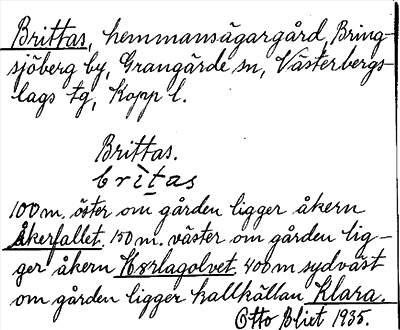 Brittas, hemmansägargård, Bring-
sjöberg by, Grangärde sn, Västerbergs-
lags tg, Kopp l.
Brittas.
britas
100 m. öster om gården ligger åkern
Åkerfallet. 150 m. väster om gården lig-
ger åkern Horlagolvet. 400 m sydväst
om gården ligger kallkällan Klara.
Otto Bliet 1935.